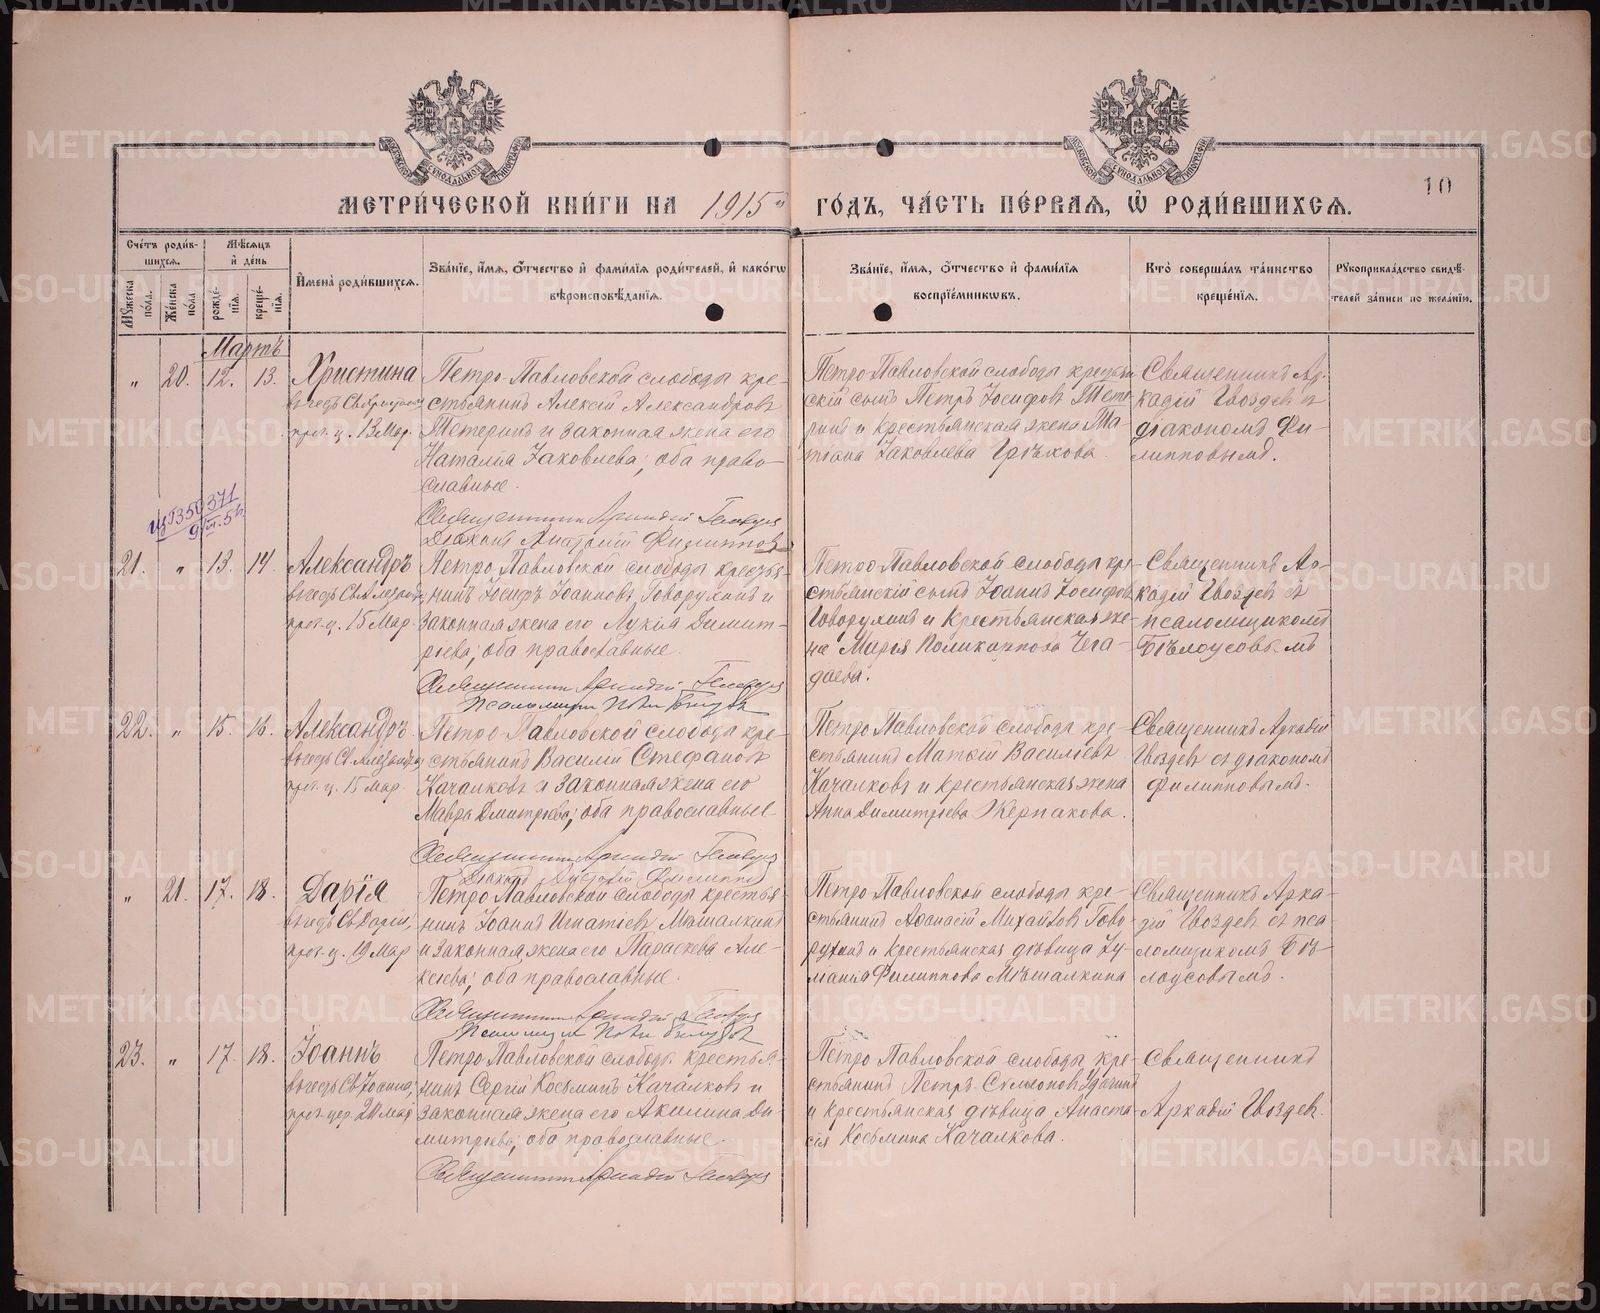 МЕТРИ́ЧЕСКОЙ КНИ́ГИ НА 1915 ГО́ДЪ, ЧА́СТЬ ПЕ́РВАЯ, Ѡ҆ РОДИ́ВШИХСЯ.
10
Сче́тъ роди́в-
шихся.
Му́жеска по́ла.
Же́нска по́ла
Мѣ́сяцъ
и҆ де́нь
рожде́-
нїя.
креще́-
нїя.
И҆мена̀ роди́вшихся.
Зва́нїе, и҆́мя, ѻ҆́тчество и҆ фами́лїя роди́телей, и҆ како́гѡ
вѣроисповѣ́данїя.
Зва́нїе, и҆́мя, ѻ҆́тчество и҆ фами́лїя
воспрїе́мникѡвъ.
Кто̀ соверша́лъ та́инство
креще́нїя.
Рꙋкоприкла́дство свидѣ́-
телей за́писи по жела́нїю.
Мартъ
„ 20. 12. 13.
Христина
прст. ц. 13 Мар.
Петро-Павловской слободы кре-
стьянинъ Алексій Александровъ
Тетеринъ и законная жена его
Наталія Іаковлева; оба право-
славные.
Священникъ Аркадій Гвоздевъ
Діаконъ Анатолій Филипповъ
Петро-Павловской слободы крестьян-
скій сынъ Петръ Іосифовъ Тете-
ринъ и крестьянская жена Та-
тіана Іаковлева Грѣхова.
Священникъ Ар-
кадій Гвоздевъ съ
діакономъ Фи-
липповымъ.
21. „ 13. 14.
Александръ
прст. ц. 15 Мар.
Петро-Павловской слободы крестья-
нинъ Іосифъ Іоанновъ Говорухинъ и
законная жена его Лукія Димит-
ріева; оба православные.
Священникъ Аркадій Гвоздевъ
Петро-Павловской слободы кре-
стьянскій сынъ Іоаннъ Іосифовъ
Говорухинъ и крестьянская же-
на Марія Поликарпова Чега-
даева.
Священникъ Ар-
кадій Гвоздевъ съ
псаломщикомъ
Бѣлоусовымъ
22. „ 15. 16.
Александръ
прст. ц. 15 мар.
Петро-Павловской слободы кре-
стьянинъ Василій Стефановъ
Качалковъ и законная жена его
Мавра Димитріева; оба православные.
Священникъ Аркадій Гвоздевъ
Діаконъ Анатолій Филипповъ
Петро-Павловской слободы кре-
стьянинъ Матѳій Васильевъ
Качалковъ и крестьянская жена
Анна Димитріева Жернакова.
Священникъ Аркадій
Гвоздевъ съ діакономъ
Филипповымъ.
„ 21. 17. 18.
Дарія
прст. ц. 19 Мар.
Петро-Павловской слободы крестья-
нинъ Іоаннъ Игнатіевъ Мѣшалкинъ
и законная жена его Параскева Але-
ксіева; оба православные.
Священникъ Аркадій Гвоздевъ
Петро-Павловской слободы кре-
стьянинъ Аѳанасій Михайловъ Гово-
рухинъ и крестьянская дѣвица Іу-
ліанія Филиппова Мѣшалкина
Священникъ Арка-
дій Гвоздевъ съ пса-
ломщикомъ Бѣ-
лоусовымъ.
23. „ 17. 18.
Іоаннъ
Петро-Павловской слободы крестья-
нинъ Сергій Косьминъ Качалковъ и
законная жена его Акилина Ди-
митріева; оба православные.
Священникъ Аркадій Гвоздевъ
Петро-Павловской слободы кре-
стьянинъ Петръ Сѵмеоновъ Удачинъ
и крестьянская дѣвица Анаста-
сія Косьмина Качалкова.
Священникъ
Аркадій Гвоздевъ.
METRIKI.GASO-URAL.RU